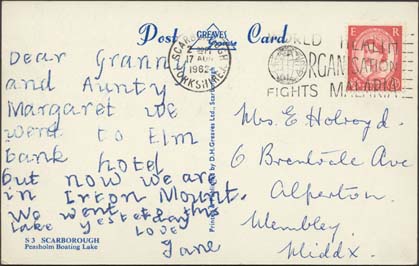 Post GREAVES Card
Dear Granny
and Aunty
Margaret we
went to Elm
bank hotel
but now we are
in Irton Mount.
We went to this
Lake yesterday
Love
Jane
S 3 SCARBOROUGH
Peasholm Boating Lake
SCARBOROUGH
17 AUG
1962
YORKSHIRE
WORLD HEALTH
ORGANISATION
FIGHTS MALARIA
E R
Mrs. E Holroyd.
6 Brentvale Ave
Alperton.
Wembley.
Middx.